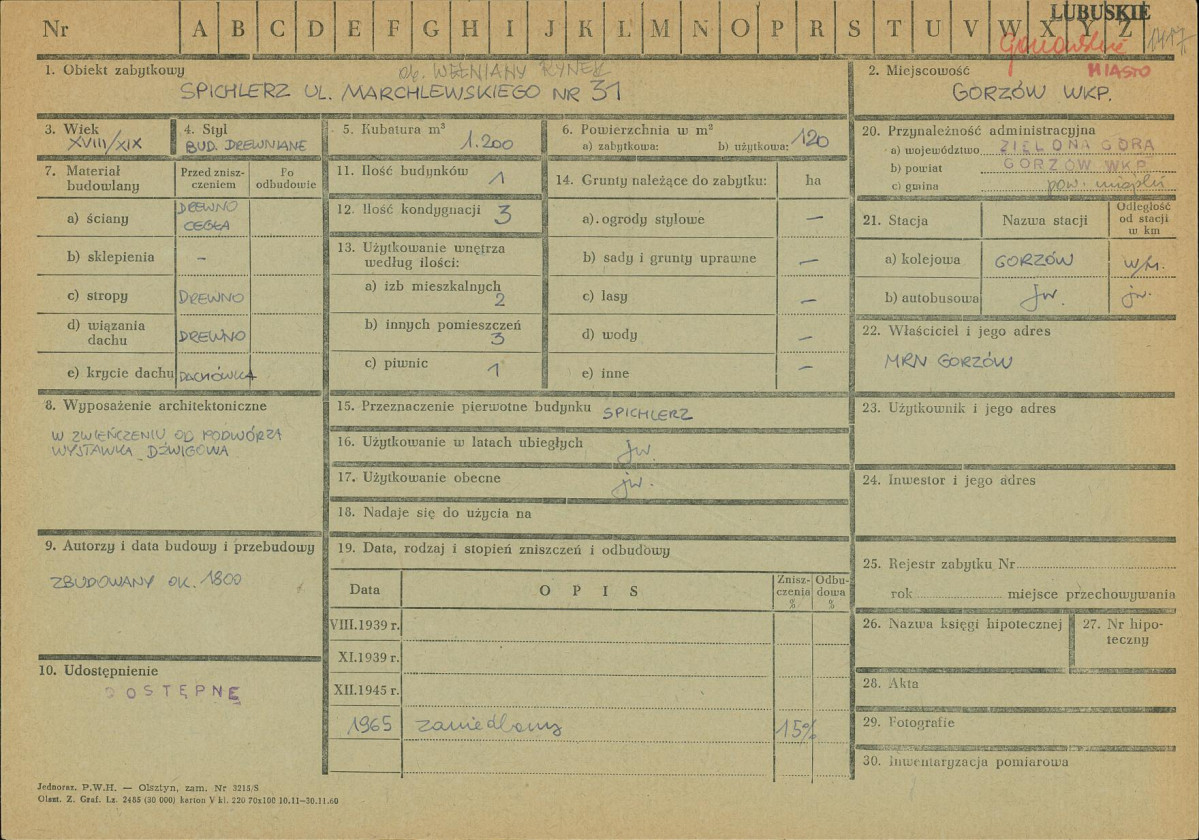 Nr A B C D E F G H I J K L Ł M N O P R S T U V W X Y Z
LUBUSKIE
MIASTO
1. Obiekt zabytkowy
ob. WEŁNIANY RYNEK
SPICHLERZ UL. MARCHLEWSKIEGO NR 31
2. Miejscowość
GORZÓW WKP.
3. Wiek
XVIII/XIX
4. Styl
BUD. DREWNIANE
5. Kubatura m³
1.200
6. Powierzchnia w m²
a) zabytkowa: b) użytkowa: 120
7. Materiał budowlany
Przed zniszczeniem
Po odbudowie
a) ściany DREWNO CEGŁA
b) sklepienia –
c) stropy DREWNO
d) wiązania dachu DREWNO
e) krycie dachu DACHÓWKA
8. Wyposażenie architektoniczne
W ZWIEŃCZENIU OD PODWÓRZA
WYSTAWKA DŹWIGOWA
9. Autorzy i data budowy i przebudowy
ZBUDOWANY OK. 1800
10. Udostępnienie
DOSTĘPNE
11. Ilość budynków 1
12. Ilość kondygnacji 3
13. Użytkowanie wnętrza
według ilości:
a) izb mieszkalnych 2
b) innych pomieszczeń 3
c) piwnic 1
14. Grunty należące do zabytku: ha
a). ogrody stylowe –
b) sady i grunty uprawne –
c) lasy –
d) wody –
e) inne –
15. Przeznaczenie pierwotne budynku SPICHLERZ
16. Użytkowanie w latach ubiegłych jw.
17. Użytkowanie obecne jw.
18. Nadaje się do użycia na
19. Data, rodzaj i stopień zniszczeń i odbudowy
Data OPIS Zniszczenia % Odbudowa %
VIII.1939 r.
XI.1939 r.
XII.1945 r.
1965 zaniedbany 15%
20. Przynależność administracyjna
a) województwo ZIELONA GÓRA
b) powiat GORZÓW WKP.
c) gmina pow. miejski
21. Stacja Nazwa stacji Odległość od stacji w km
a) kolejowa GORZÓW w/m.
b) autobusowa jw. jw.
22. Właściciel i jego adres
MRN GORZÓW
23. Użytkownik i jego adres
24. Inwestor i jego adres
25. Rejestr zabytku Nr
rok miejsce przechowywania
26. Nazwa księgi hipotecznej
27. Nr hipoteczny
28. Akta
29. Fotografie
30. Inwentaryzacja pomiarowa
Jednoraz. P.W.H. — Olsztyn, zam. Nr 3215/S
Olszt. Z. Graf. Lz. 2485 (30 000) karton V kl. 220 70x100 10.11—30.11.60